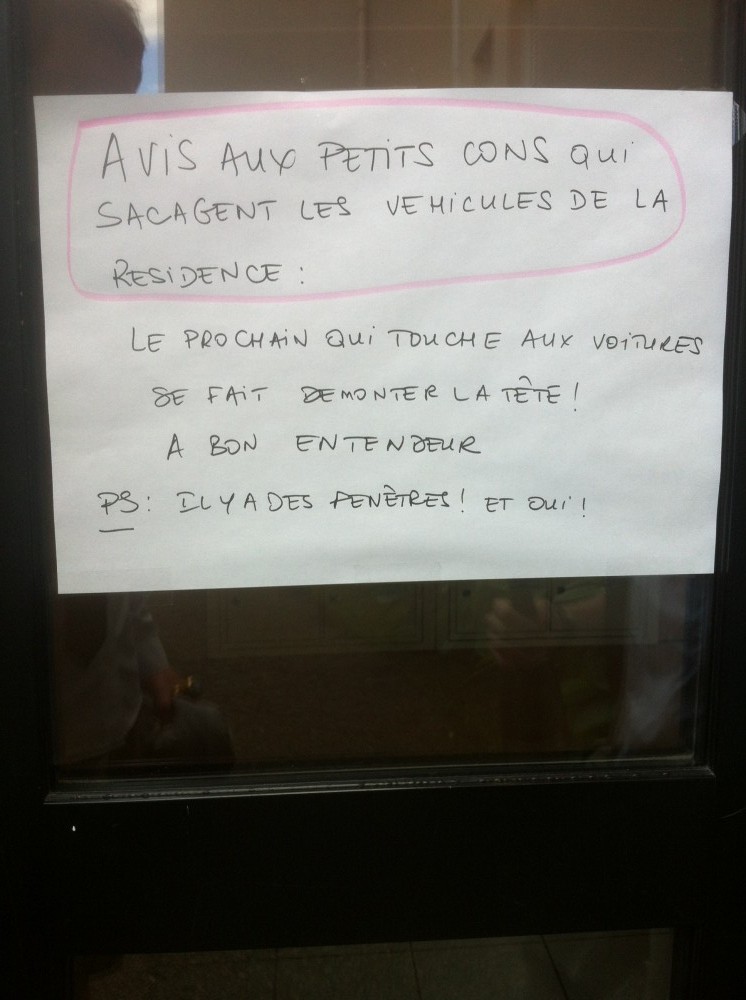 AVIS AUX PETITS CONS QUI
SACAGENT LES VEHICULES DE LA
RESIDENCE :
LE PROCHAIN QUI TOUCHE AUX VOITURES
SE FAIT DEMONTER LA TÊTE !
A BON ENTENDEUR
PS : IL Y A DES FENÊTRES ! ET OUI !